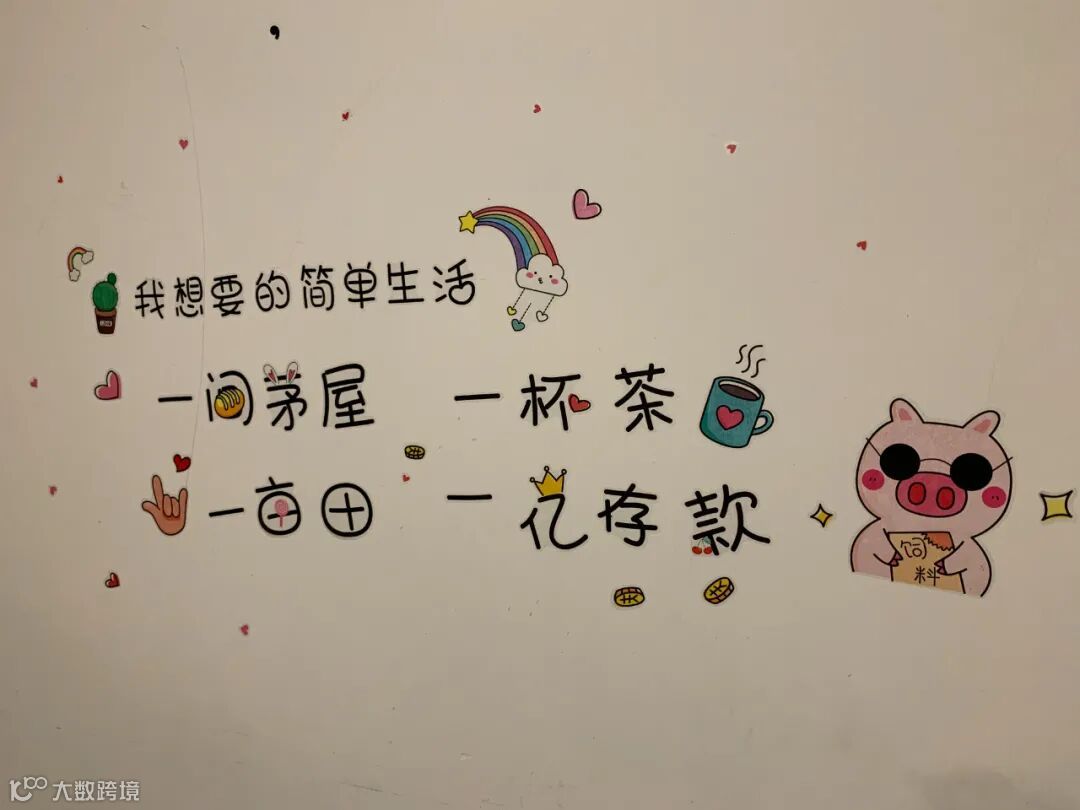 我想要的简单生活
一间茅屋 一杯茶
一亩田 一亿存款
饲
料
大数跨境